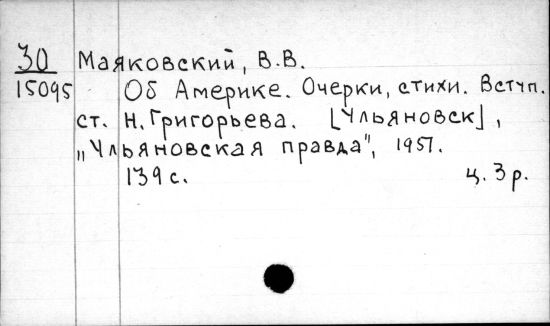 30 Маяковский, В.В.
15095 Об Америке. Очерки, стихи. Вступ.
ст. Н. Григорьева. [Ульяновск],
„Ульяновская правда", 1957.
139 с. ц. 3 р.